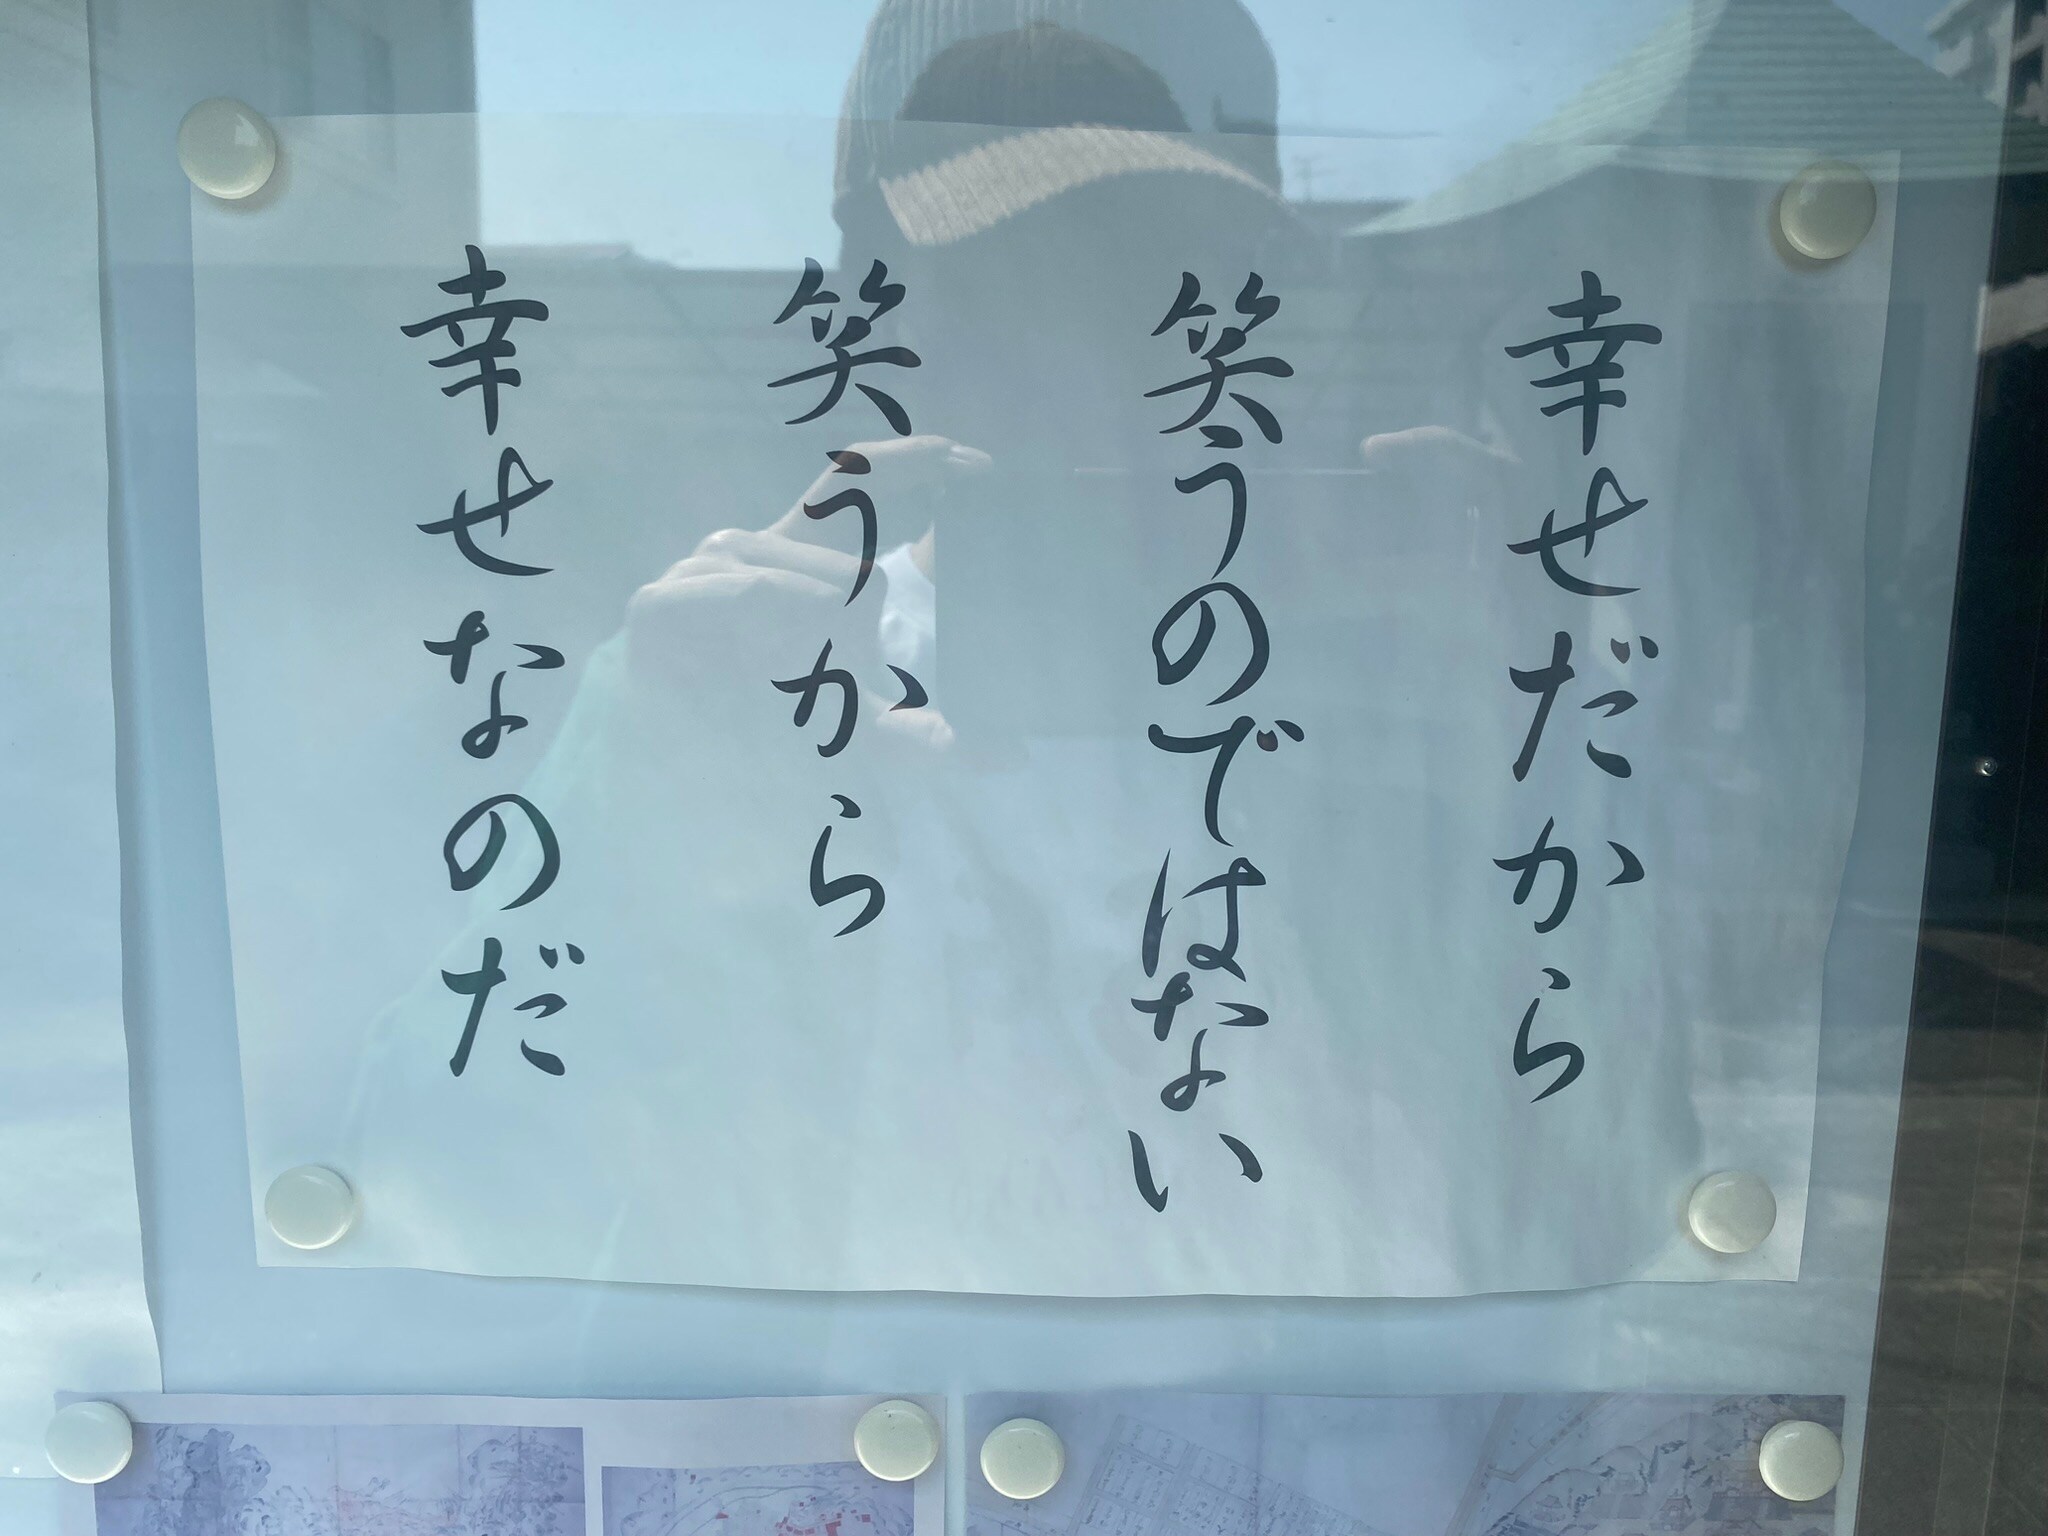 幸せだから
笑うのではない
笑うから
幸せなのだ